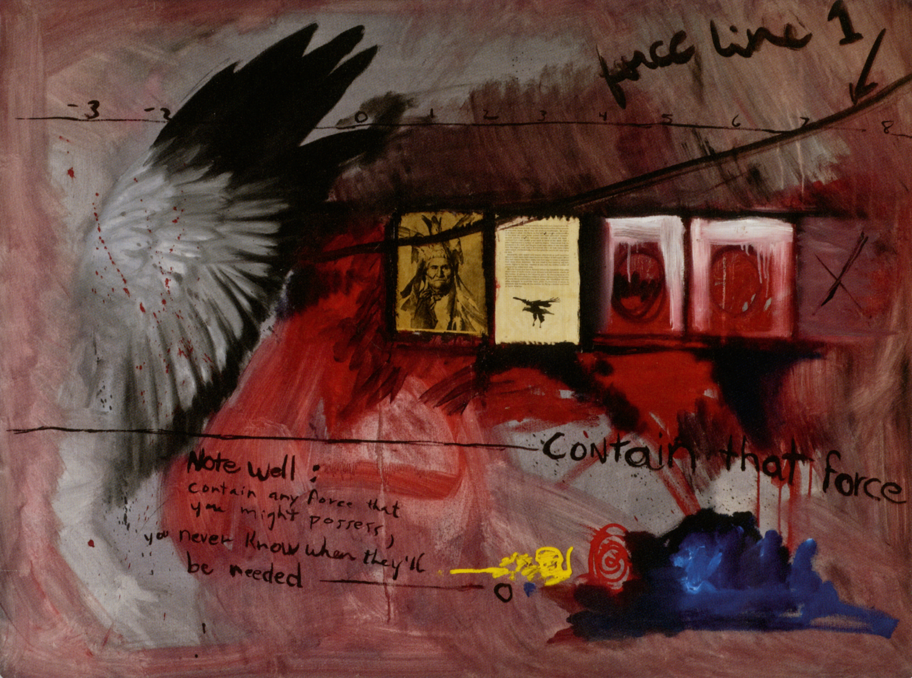 force line 1
-3 -2 0 1 2 3 4 5 6 7 8
Contain that force
Note well:
contain any force that
you might possess,
you never know when they'll
be needed